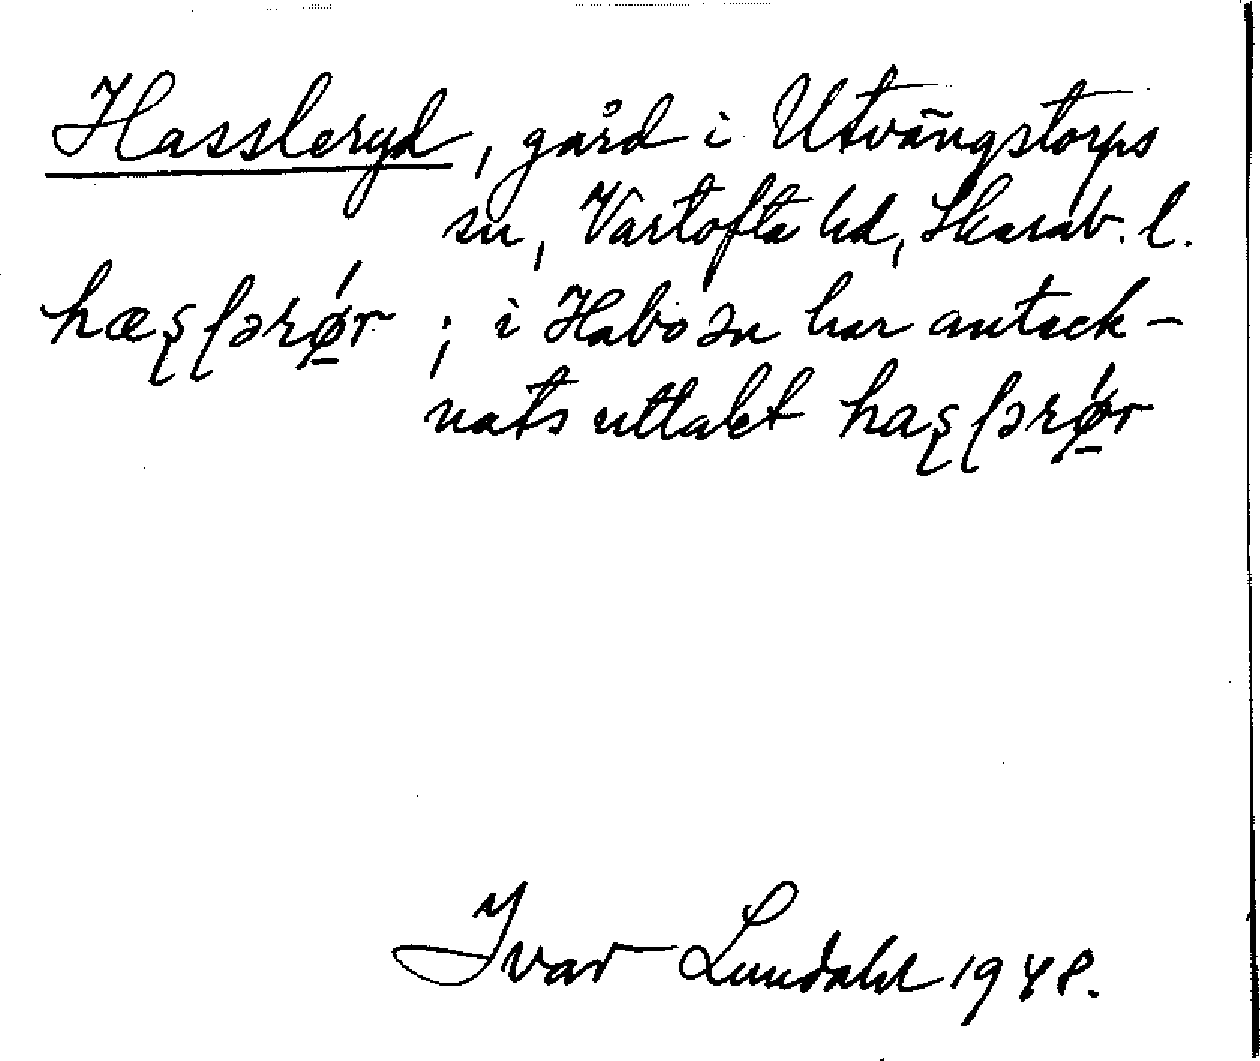 Hassleryd, gård i Utvängstorps
sn, Vartofta hd, Skarab. l.
; i Habo sn har anteck-
nats uttalet
Ivar Lundahl 1948.